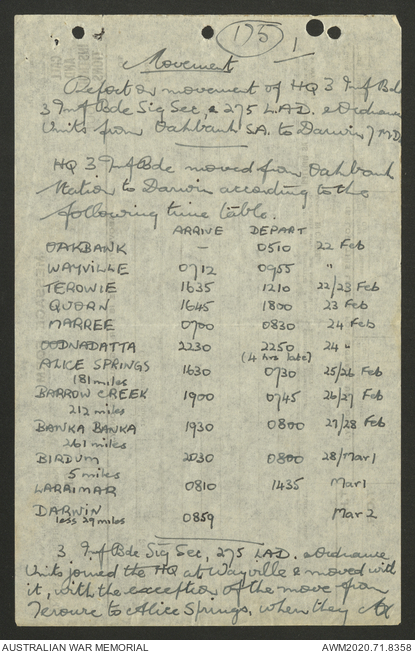 175 1
Movement
Report on movement of HQ 3 Inf Bde
3 Inf Bde Sig Sec, & 275 L.A.D. & Ordnance
Units from Oakbank SA. to Darwin 7 M.D.
HQ 3 Inf Bde moved from Oakbank
Station to Darwin according to the
following time table.
ARRIVE DEPART
OAKBANK — 0510 22 Feb
WAYVILLE 0712 0955 "
TEROWIE 1635 1210 22/23 Feb
QUORN 1645 1800 23 Feb
MARREE 0700 0830 24 Feb
OODNADATTA 2230 2250 24 "
(4 hrs late)
ALICE SPRINGS 1630 0730 25/26 Feb
181 miles
BARROW CREEK 1900 0745 26/27 Feb
212 miles
BANKA BANKA 1930 0800 27/28 Feb
261 miles
BIRDUM 2030 0800 28/Mar 1
5 miles
LARRIMAR 0810 1435 Mar 1
DARWIN 0859 Mar 2
less 29 miles
3 Inf Bde Sig Sec, 275 LAD. & Ordnance
Units joined the HQ at Wayville & moved with
it, with the exception of the move from
Terowie to Alice Springs, when they
AUSTRALIAN WAR MEMORIAL AWM2020.71.8358